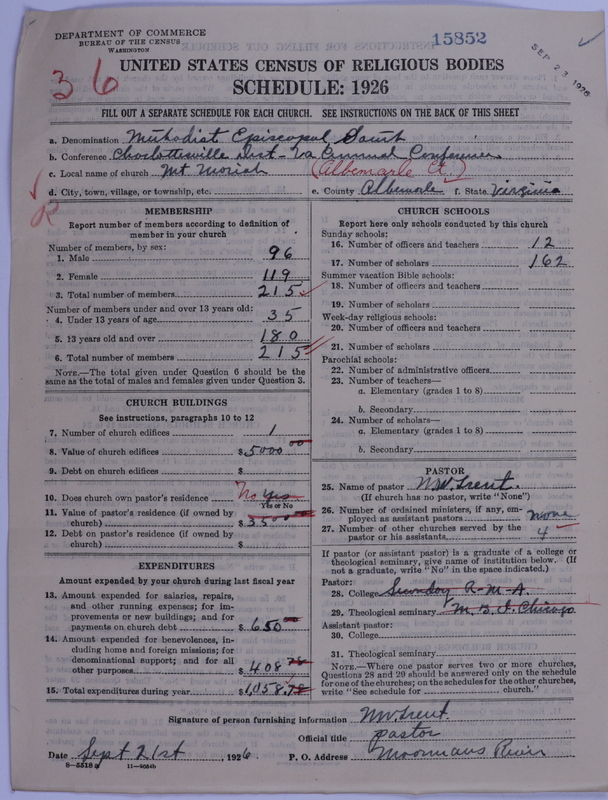 DEPARTMENT OF COMMERCE
BUREAU OF THE CENSUS
WASHINGTON
15852
SEP 23 1926
36
UNITED STATES CENSUS OF RELIGIOUS BODIES
SCHEDULE: 1926
FILL OUT A SEPARATE SCHEDULE FOR EACH CHURCH. SEE INSTRUCTIONS ON THE BACK OF THIS SHEET
a. Denomination Methodist Episcopal South
b. Conference Charlottesville Dist - Va Annual Conference
c. Local name of church Mt Moriah (Albemarle Ct.)
d. City, town, village, or township, etc. e. County Albemarle f. State Virginia
MEMBERSHIP
Report number of members according to definition of
member in your church
Number of members, by sex:
1. Male 96
2. Female 119
3. Total number of members 215
Number of members under and over 13 years old:
4. Under 13 years of age 35
5. 13 years old and over 180
6. Total number of members 215
NOTE.—The total given under Question 6 should be the
same as the total of males and females given under Question 3.
CHURCH BUILDINGS
See instructions, paragraphs 10 to 12
7. Number of church edifices 1
8. Value of church edifices $5000 00
9. Debt on church edifices $
10. Does church own pastor's residence No Yes
Yes or No
11. Value of pastor's residence (if owned by
church) $3500 00
12. Debt on pastor's residence (if owned by
church) $
EXPENDITURES
Amount expended by your church during last fiscal year
13. Amount expended for salaries, repairs,
and other running expenses; for im-
provements or new buildings; and for
payments on church debt $650 00
14. Amount expended for benevolences, in-
cluding home and foreign missions; for
denominational support; and for all
other purposes $408 78
15. Total expenditures during year $1,058.78
CHURCH SCHOOLS
Report here only schools conducted by this church
Sunday schools:
16. Number of officers and teachers 12
17. Number of scholars 162
Summer vacation Bible schools:
18. Number of officers and teachers
19. Number of scholars
Week-day religious schools:
20. Number of officers and teachers
21. Number of scholars
Parochial schools:
22. Number of administrative officers
23. Number of teachers—
a. Elementary (grades 1 to 8)
b. Secondary
24. Number of scholars—
a. Elementary (grades 1 to 8)
b. Secondary
PASTOR
25. Name of pastor N.W. Trent.
(If church has no pastor, write "None")
26. Number of ordained ministers, if any, em-
ployed as assistant pastors none
27. Number of other churches served by the
pastor or his assistants 4
If pastor (or assistant pastor) is a graduate of a college or
theological seminary, give name of institution below. (If
not a graduate, write "No" in the space indicated.)
Pastor:
28. College R-M-A.
29. Theological seminary M. B. I. Chicago
Assistant pastor:
30. College
31. Theological seminary
NOTE.—Where one pastor serves two or more churches,
Questions 28 and 29 should be answered only on the schedule
for one of the churches; on the schedules for the other churches,
write "See schedule for church."
Signature of person furnishing information NW Trent.
Official title pastor
Date Sept 21st, 1926 P. O. Address Moormans River
8—5518 a 11—9054b